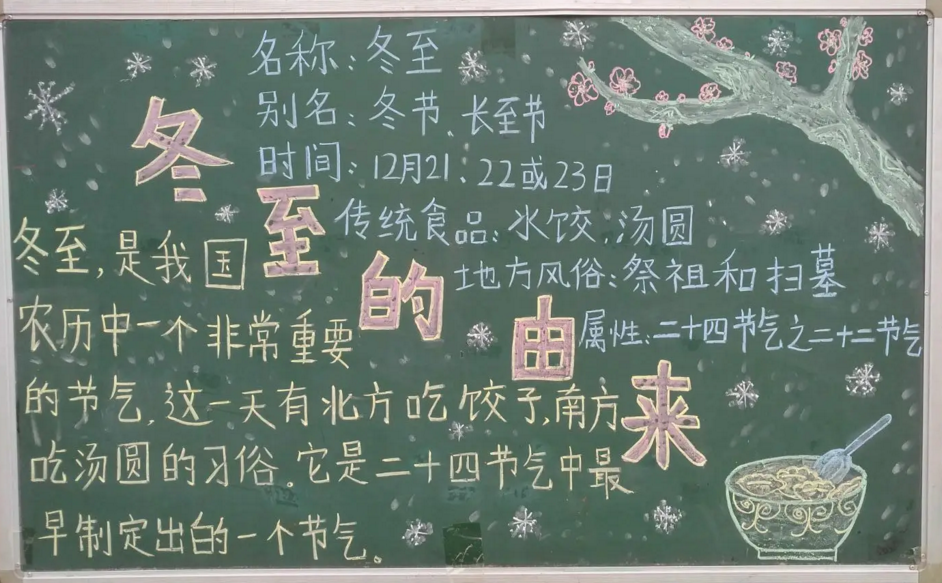 冬至的由来
名称：冬至
别名：冬节、长至节
时间：12月21、22或23日
传统食品：水饺、汤圆
地方风俗：祭祖和扫墓
属性：二十四节气之二十二节气
冬至，是我国
农历中一个非常重要
的节气，这一天有北方吃饺子，南方
吃汤圆的习俗。它是二十四节气中最
早制定出的一个节气。